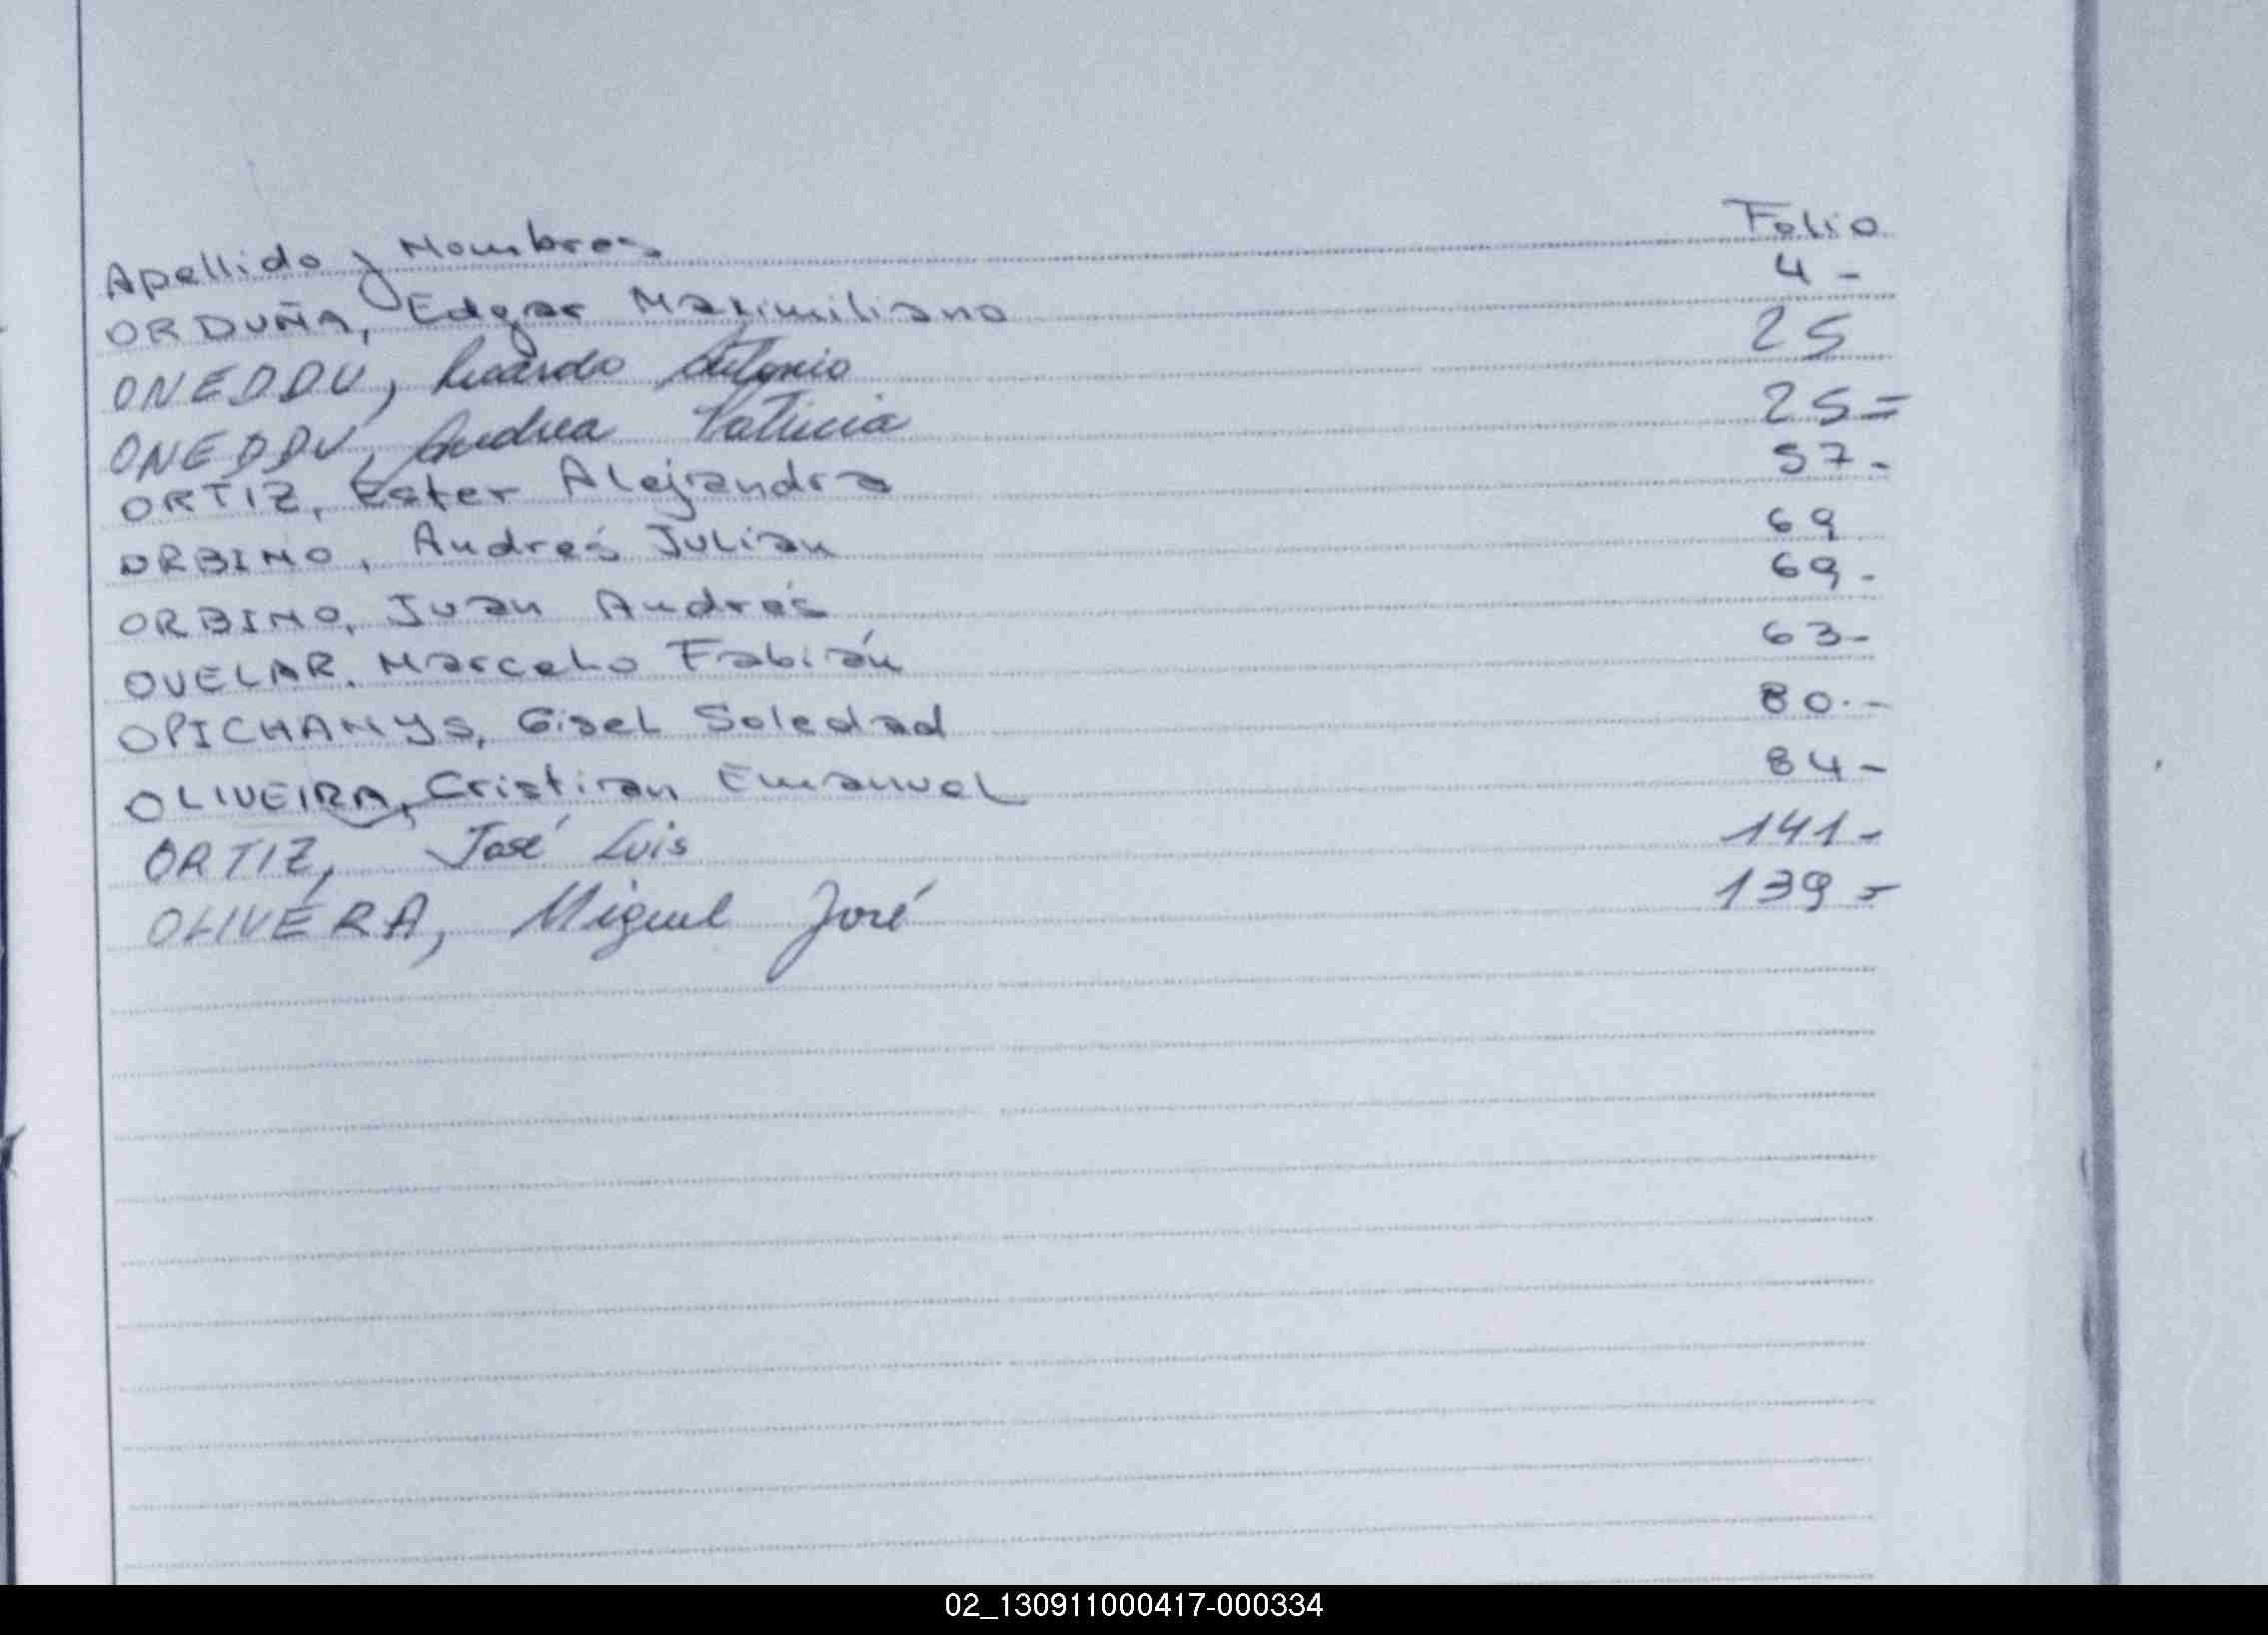 Apellido y Nombres Folio
ORDUÑA, Edgar Maximiliano 4 -
ONEDDU, Ricardo Antonio 25
ONEDDU, Andrea Patricia 25 =
ORTIZ, Ester Alejandra 57 -
ORBINO, Andrés Julian 69
ORBINO, Juan Andrés 69 -
OVELAR, Marcelo Fabián 63 -
OPICHANYS, Gisel Soledad 80 . -
OLIVEIRA, Cristian Emanuel 84 -
ORTIZ, José Luis 141 -
OLIVERA, Miguel José 139 =
02_130911000417-000334